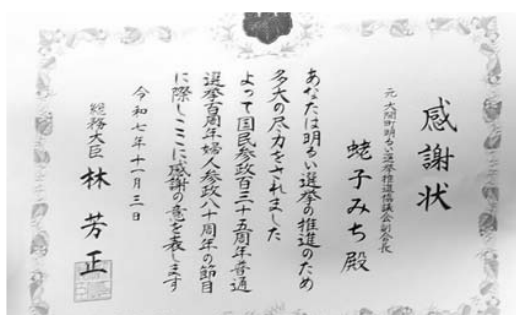 感謝状
元 大間町明るい選挙推進協議会副会長
蛯子みち殿
あなたは明るい選挙の推進のため
多大の尽力をされました
よって国民参政百三十五周年普通
選挙百周年婦人参政八十周年の節目
に際しここに感謝の意を表します
令和七年十一月三日
総務大臣 林芳正